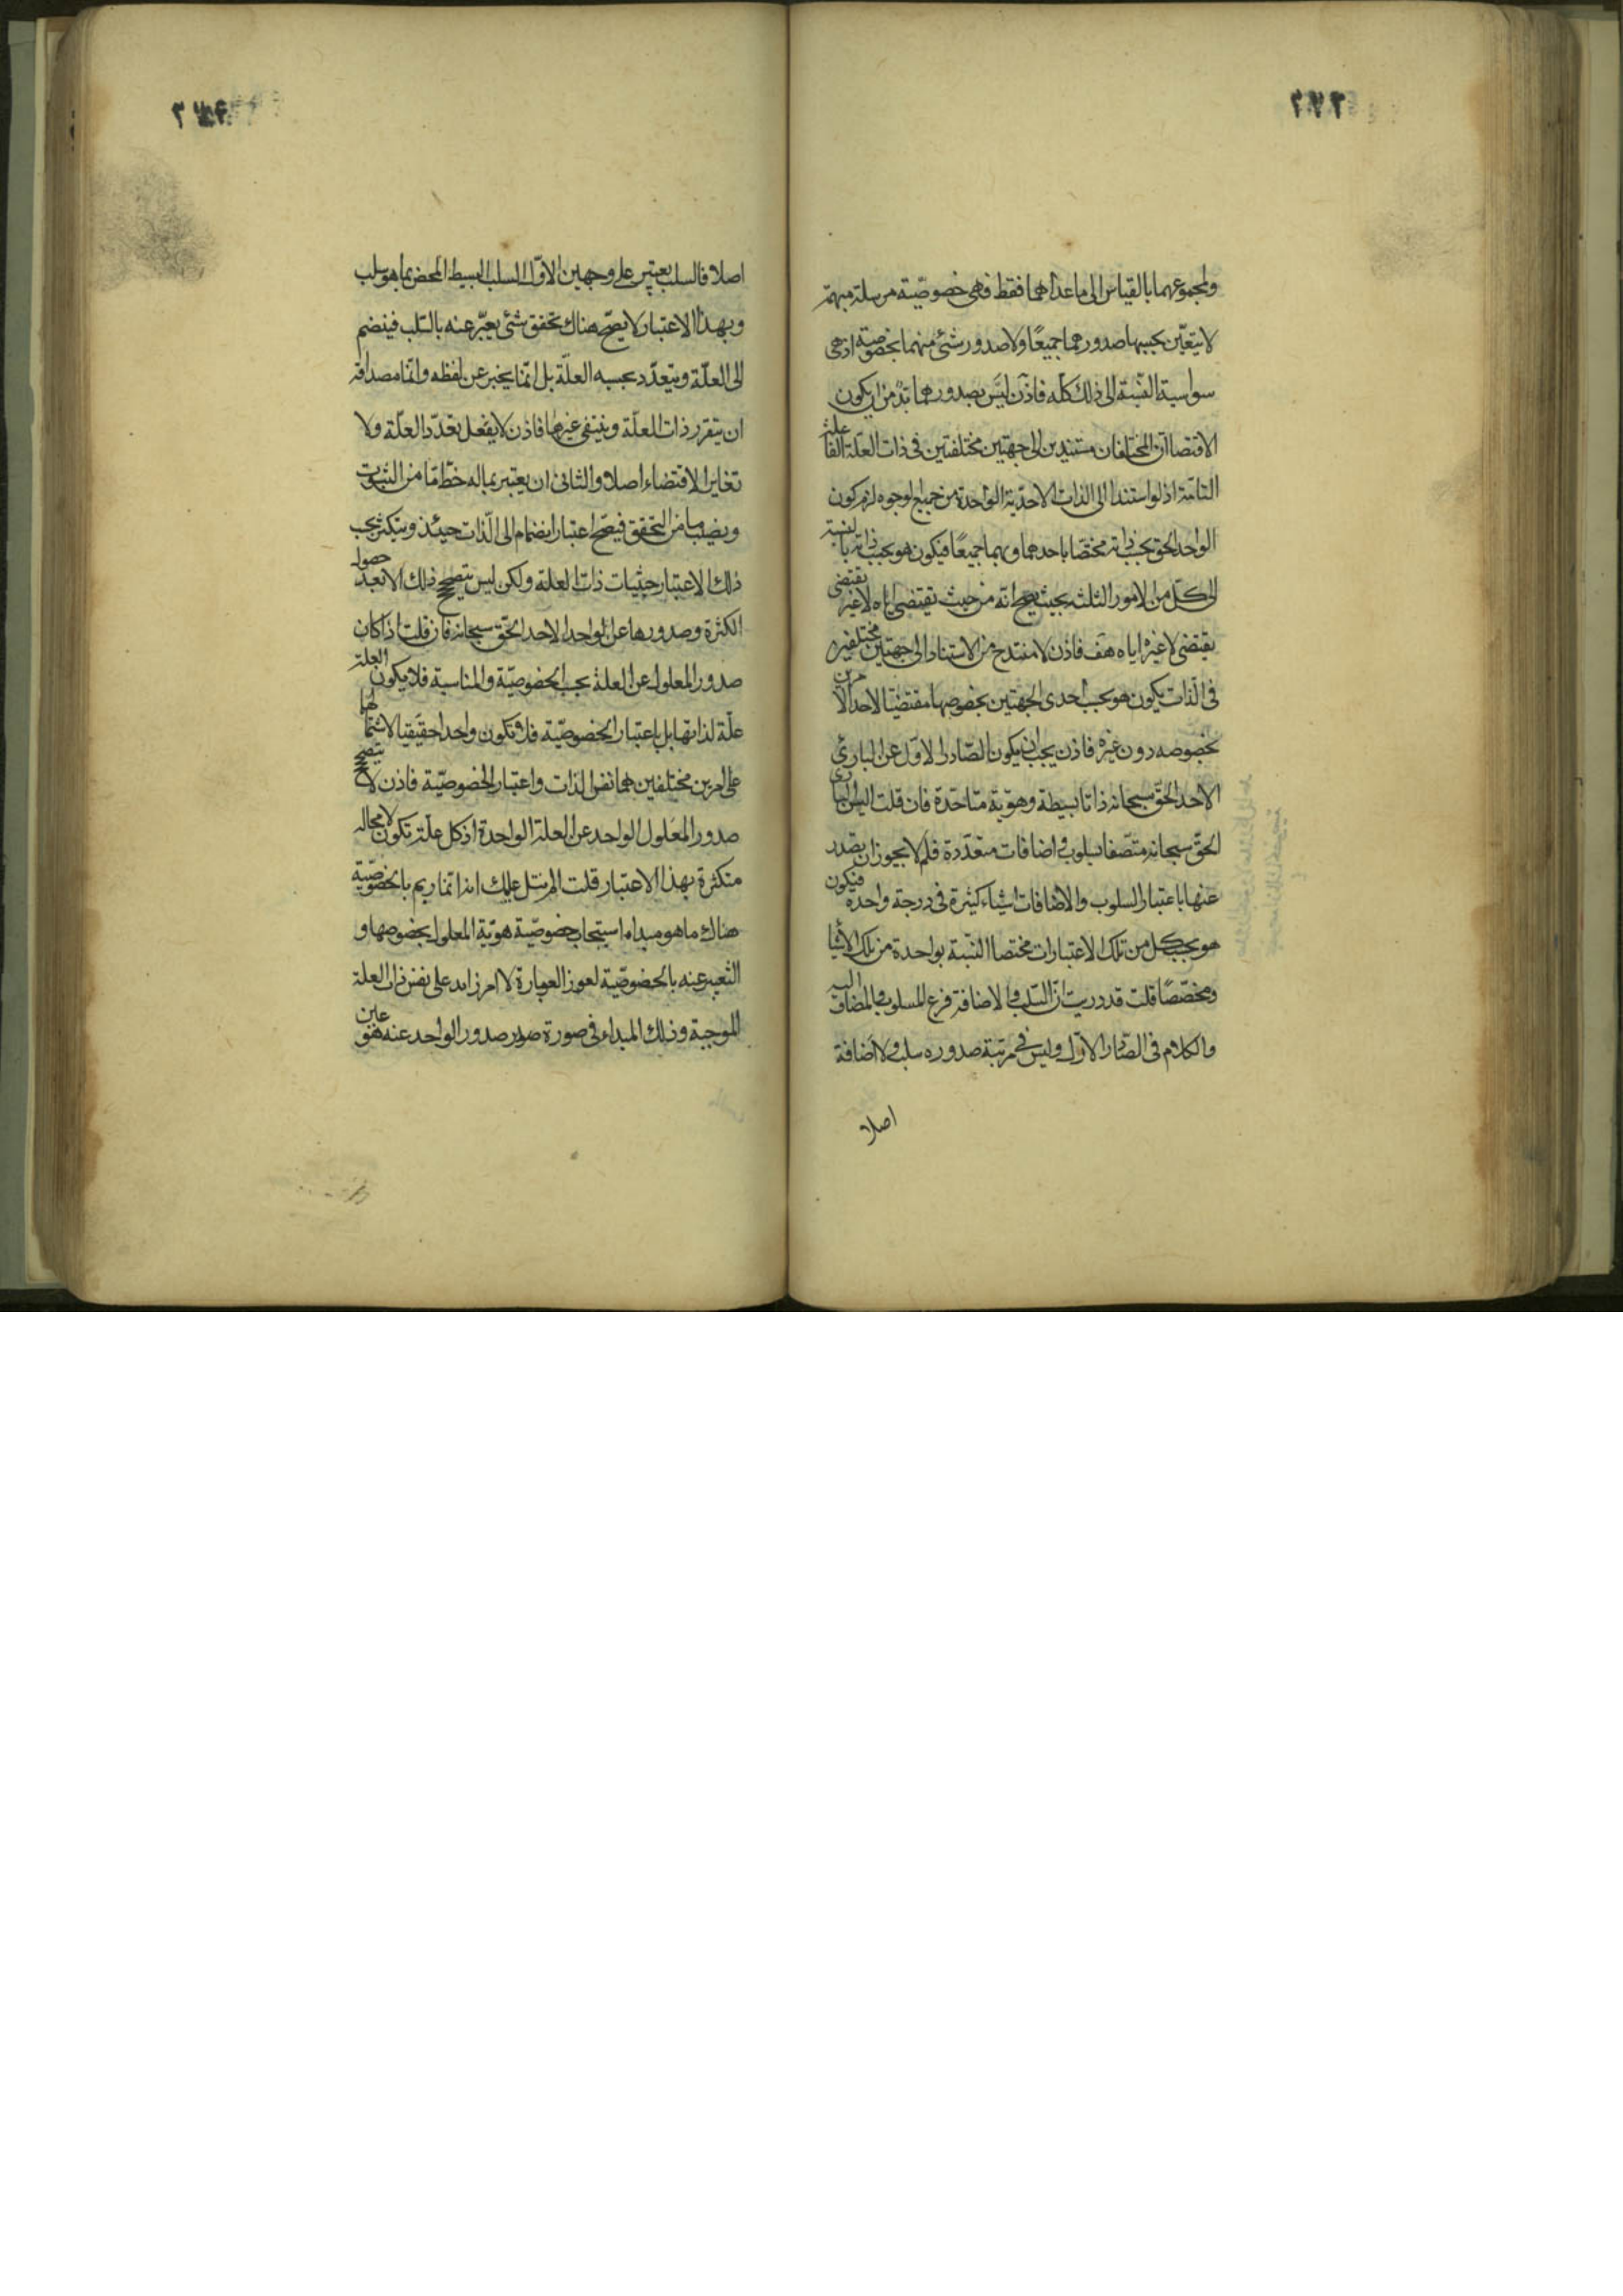 ٢٧٢
ولمجموعهما بالقياس الى ما عداهما فقط فهى خصوصيّة مرسلة مبهمة
لا يتعيّن بحسبها صدورهما جميعًا ولا صدور شئ منهما بخصوصيّة اذ هى
سواسية النسبة الى ذلك كلّه فاذن ليس بصدورهما بدّ من ان يكون
الاقتضاآن المختلفان مستندين الى جهتين مختلفتين فى ذات العلّة الفاعلة
التامّة اذ لو استندا الى الذات الاحديّة الواحدة من جميع الوجوه لزم كون
الواحد الحق بحسب ذاته مختصّا باحدهما وبهما جميعًا فيكون هو بحسب ذاته بالنسبة
الى كلّ من الامور الثلثة بحيث يصح انه من حيث يقتضى اياه لا غيره يقتضى
يقتضى لا غيره اياه هف فاذن لا منتدح من الاستناد الى جهتين مختلفتين
فى الذات يكون هو بحسب احدى الجهتين بخصوصها مقتضيًا لاحد الامرين
بخصوصه دون غيره فاذن يجب ان يكون الصّادر الاوّل عن البارئ
الاحد الحقّ سبحانه ذاتا بسيطة وهويّة متاحّدة فان قلت اليس البارى
الحقّ سبحانه متّصفا بسلوب واضافات متعدّدة فلم لا يجوز ان يصدر
عنها باعتبار السلوب والاضافات اشياء كثيرة فى درجة واحدة فيكون
هو بحسب كل من تلك الاعتبارات مختصا النسبة بواحدة من تلك الاشيا
ومخصّصًا قلت قد دريت انّ السّلب والاضافة فرع المسلوب والمضاف اليه
والكلام فى الصّادر الاوّل وليس فى مرتبة صدوره سلب ولا اضافة
اصلا
اصلا فالسلب يعتبر على وجهين الاوّل السلب البسيط المحض بما هو سلب
وبهذا الاعتبار لا يصحّ هناك تحقق شئ يعبّر عنه بالسّلب فينضم
الى العلّة ويتعدّد بحسبه العلّة بل انّما يخبر عن لفظه وانّما مصداقه
ان يتقرر ذات العلّة وينتفى غيرها فاذن لا يفعل تعدّد العلّة ولا
تغاير الاقتضاء اصلا والثانى ان يعتبر بما له حظّ مّا من الثبوت
ونصيب ما من التحقق فيصحّ اعتبار انضمام الى الّذات حينئذ ويتكثر بحسب
ذلك الاعتبار حيثيات ذات العلة ولكن ليس يتصحح ذلك الا بعد حصول
الكثرة وصدورها عن الواحد الاحد الحقّ سبحانه فان قلت اذا كان
صدور المعلول عن العلة بحسب الخصوصيّة والمناسبة فلا يكون العلة
علّة لذاتها بل باعتبار الخصوصيّة فلا تكون واحدا حقيقيا لاشتمالها
على امرين مختلفين هما نفس الذات واعتبار الخصوصيّة فاذن لا يتصحح
صدور المعلول الواحد عن العلة الواحدة اذ كل علّة تكون لا محالة
متكثرة بهذا الاعتبار قلت الم نتل عليك انه انّما ريم بالخصوصيّة
هناك ما هو مبداء استيجاب خصوصيّة هويّة المعلول بخصوصها و
التعبير عنه بالخصوصيّة لعوز العبارة لا امر زايد على نفس ذات العلة
الموجبة وذلك المبداء فى صورة صدور الواحد عنه هو عين